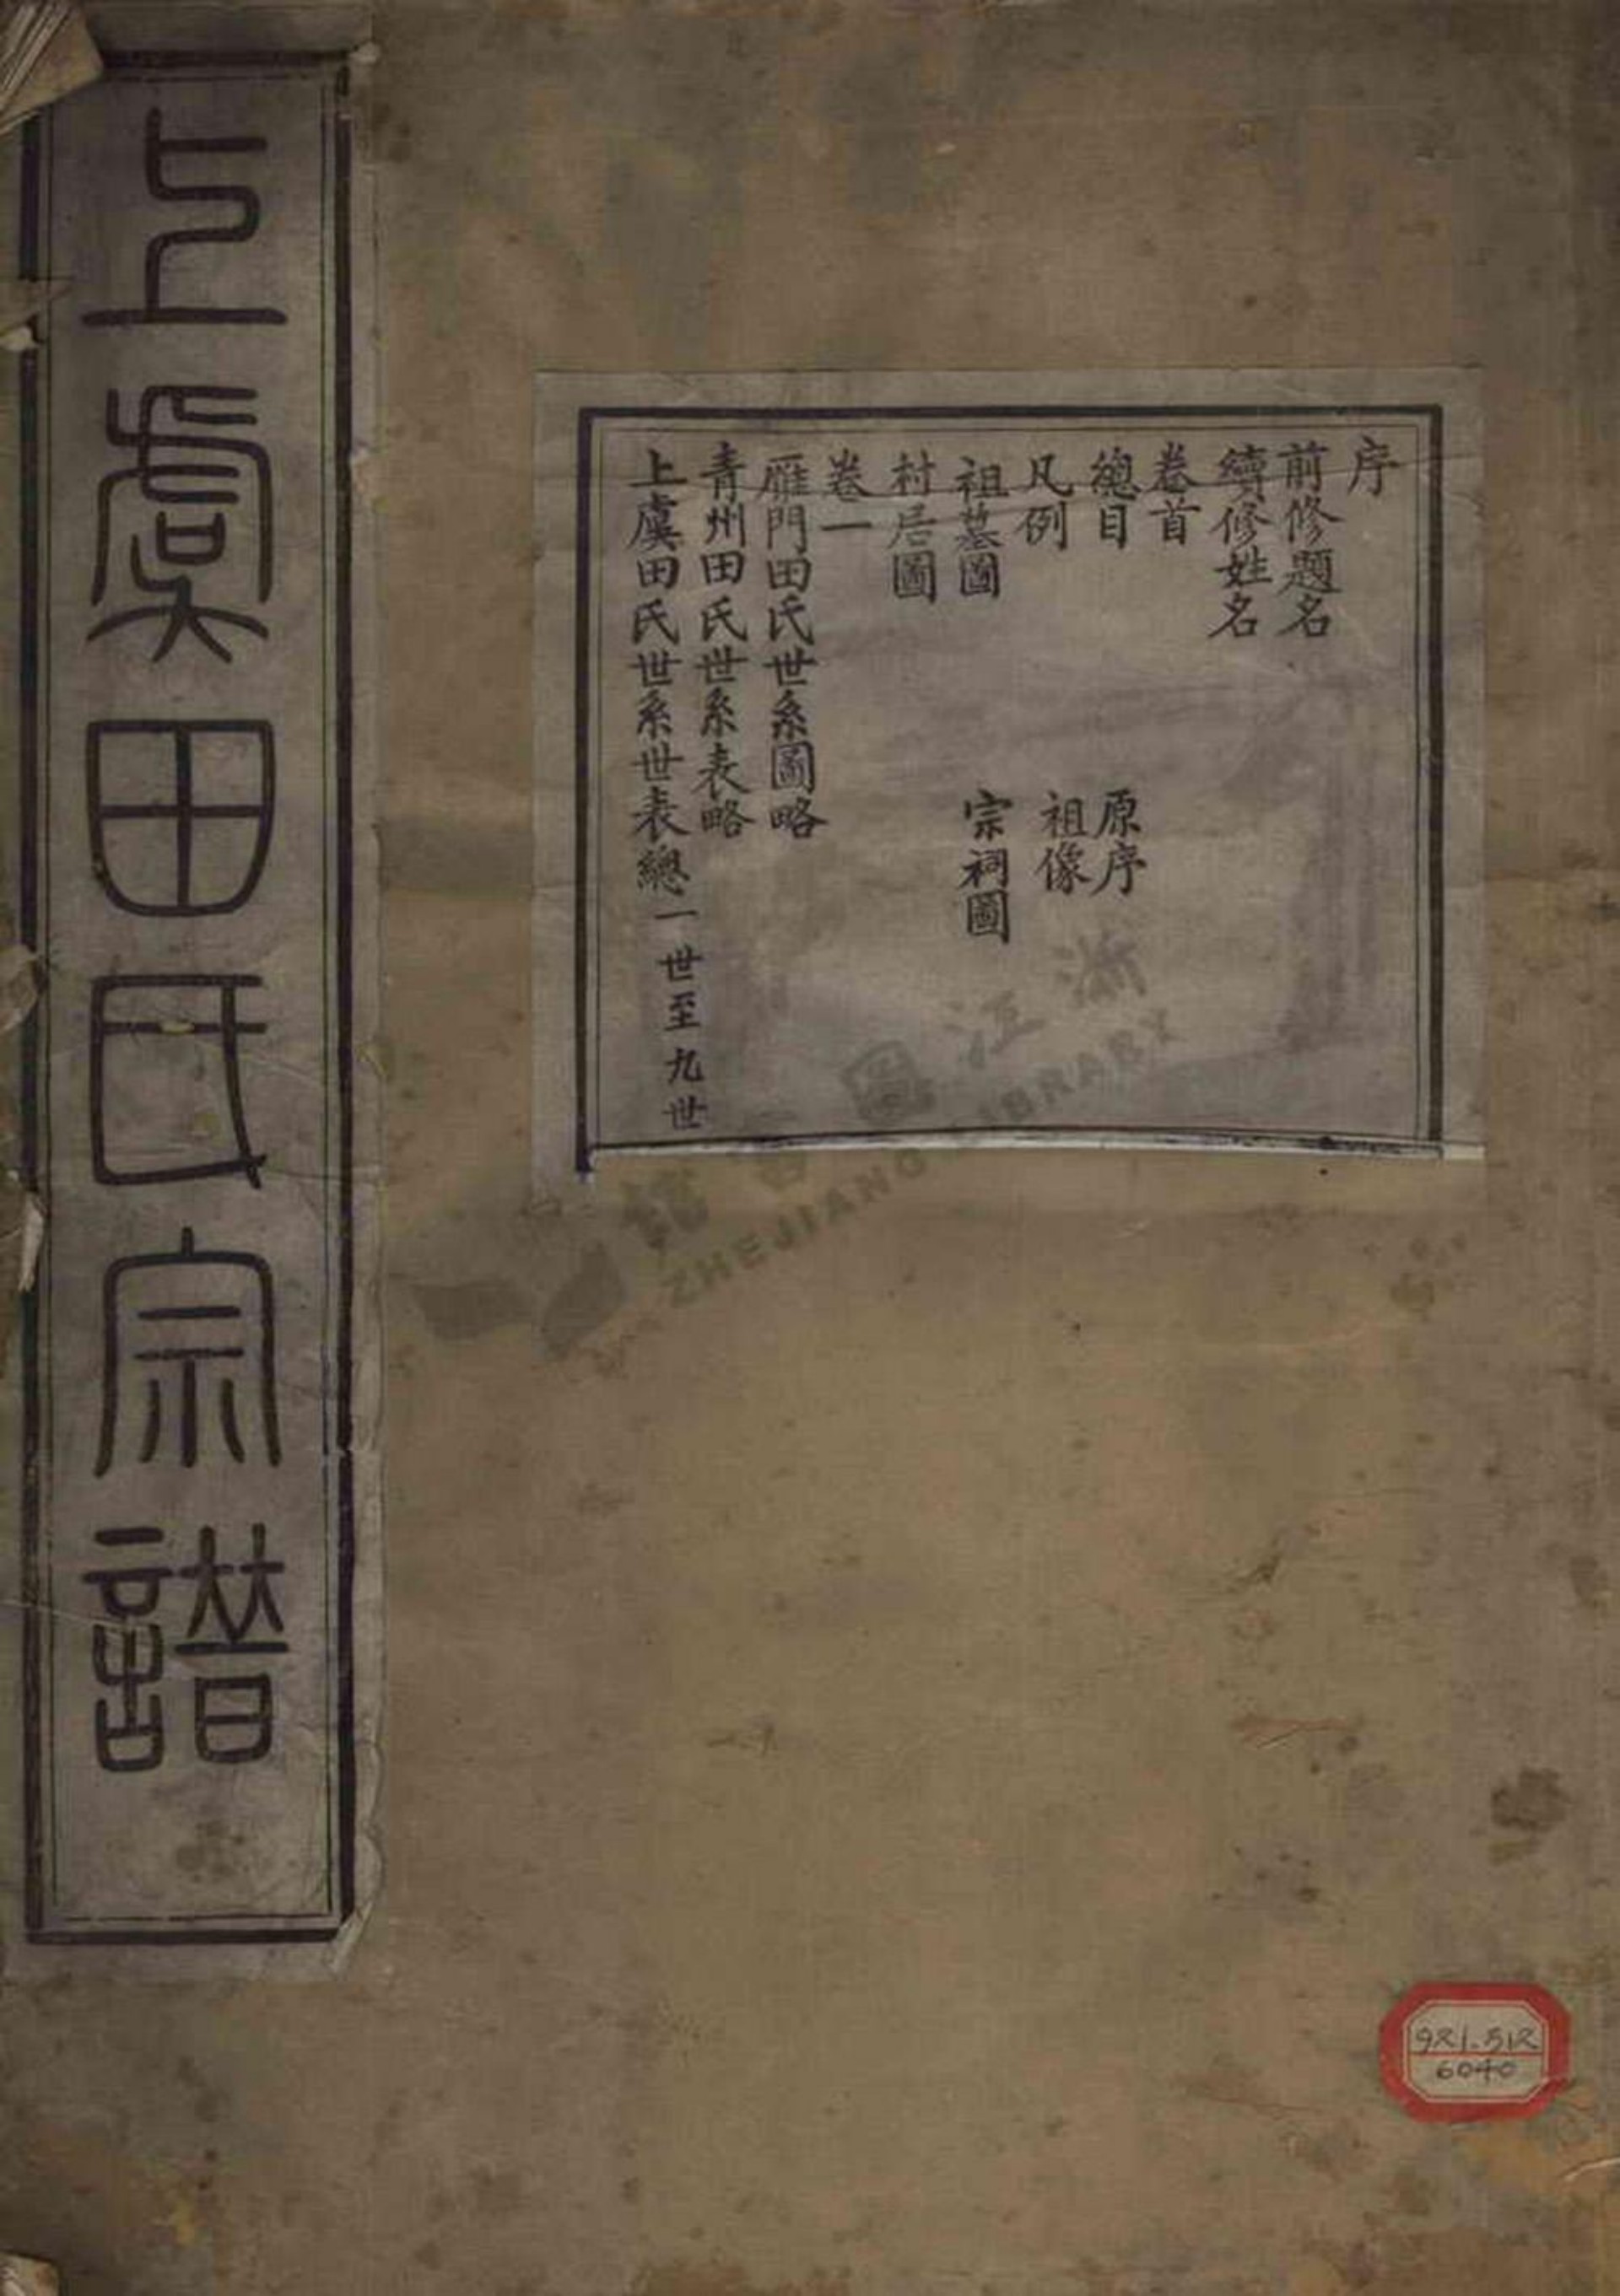 上虞田氏宗譜
序
前修題名
續修姓名
卷首
總目
原序
凡例
祖像
祖墓圖
宗祠圖
村居圖
卷一
雁門田氏世系圖略
青州田氏世系表略
上虞田氏世系世表總一世至九世
浙江圖書館
ZHEJIANG LIBRARY
921.512
6040